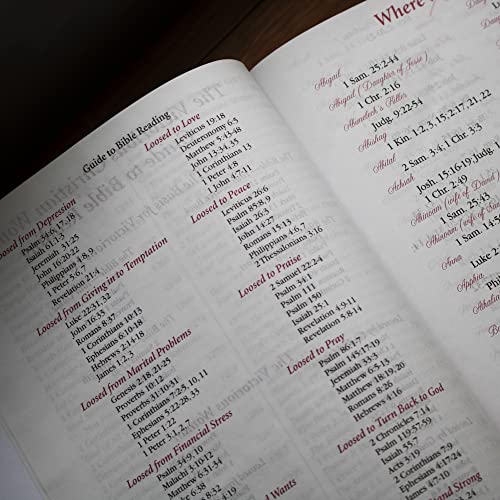 Guide to Bible Reading
Loosed from Depression
Psalm 34:6, 17-18
Isaiah 61:1-3
Jeremiah 31:25
John 16:33
Philippians 4:8, 9
1 Peter 5:6, 7
Revelation 21:4
Loosed from Giving in to Temptation
Luke 22:31, 32
John 16:33
Romans 8:37
1 Corinthians 10:13
Ephesians 6:10-18
Hebrews 2:14-18
James 1:2, 3
Loosed from Marital Problems
Genesis 2:18, 21-25
Proverbs 10:12
Proverbs 31:10-31
1 Corinthians 7:2-5, 10, 11
Ephesians 5:22-28, 33
1 Peter 1:22
1 Peter 3:1, 2, 7
Loosed from Financial Stress
Psalm 34:9, 10
Malachi 3:10-12
Matthew 6:31-34
Luke 6:38
Loosed to Love
Leviticus 19:18
Deuteronomy 6:5
Matthew 5:43-48
John 13:34, 35
1 Corinthians 13
1 Peter 4:8
1 John 4:7-11
Loosed to Peace
Leviticus 26:6
Psalm 85:8, 9
Isaiah 26:3
John 14:27
Romans 15:13
Philippians 4:6, 7
2 Thessalonians 3:16
Loosed to Praise
2 Samuel 22:2-4
Psalm 34:1
Psalm 111
Psalm 150
Isaiah 25:1
Revelation 4:9-11
Revelation 5:8-14
Loosed to Pray
Psalm 86:1-7
Psalm 145:17-19
Jeremiah 33:3
Matthew 6:5-13
Matthew 18:19, 20
Romans 8:26
Hebrews 4:16
Loosed to Turn Back to God
2 Chronicles 7:14
Psalm 119:57-59
Isaiah 55:7
Acts 3:19
2 Corinthians 7:9
Ephesians 4:17-24
Wants
and Strong
Where
Abigail
1 Sam. 25:2-44
Abigail (Daughter of Jesse)
1 Chr. 2:16
Abimelech's Killer
Judg. 9:22-54
Abishag
1 Kin. 1:2, 3, 15; 2:17, 21, 22
Abital
2 Sam. 3:4; 1 Chr. 3:3
Achsah
Josh. 15:16-19; Judg. 1
1 Chr. 2:49
Ahinoam (wife of David)
1 Sam. 25:43
Ahinoam (wife of Saul)
1 Sam. 14
Anna
Luke 2
Apphia
Phi
Athaliah